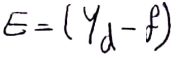 E = (Y_d - f)